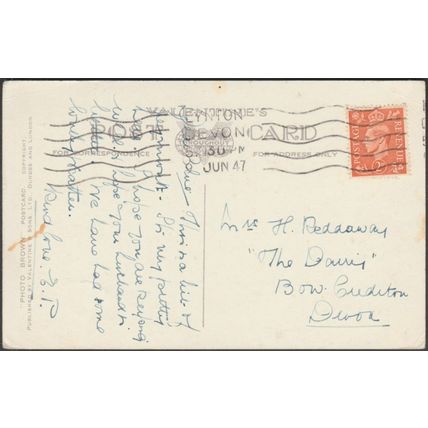 VALENTINE'S
POST CARD
FOR CORRESPONDENCE
FOR ADDRESS ONLY
LYNTON
DEVON
30 JUN 47
POSTAGE REVENUE
"PHOTO BROWN" POSTCARD. COPYRIGHT.
PUBLISHED BY VALENTINE & SONS, LTD. DUNDEE AND LONDON
This is a bit of
Exmoor. It's very pretty
here. I hope you are keeping
well & that your husband is
better. We have had some
lovely weather.
Kind love E.P.
Mrs H. Reddaway
"The Dairy"
Bow. Crediton
Devon